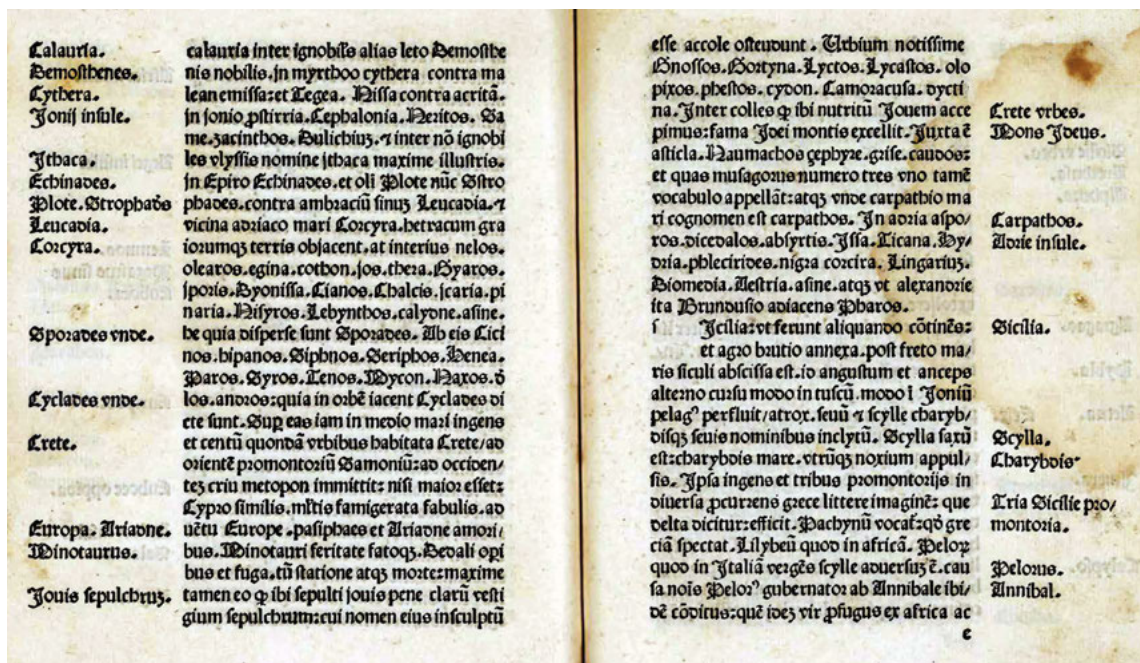 Calauria.
Demosthenes.
Cythera.
Jonij insule.
Jthaca.
Echinades.
Plote. Strophad̄s
Leucadia.
Corcyra.
Sporades vnde.
Cyclades vnde.
Crete.
Europa. Ariadne.
Minotaurus.
Jouis sepulchruꝫ.
calauria inter ignobiles alias leto Demosthe
nis nobilis. jn myrthoo cythera contra ma
lean emissa: et Tegea. Nissa contra acritā.
jn jonio ꝓstirria. Cephalonia. Neritos. Sa
me. zacinthos. Dulichiuꝫ. ⁊ inter nō ignobi
les vlyssis nomine jthaca maxime illustris.
jn Epiro Echinades. et oli Plote nūc Stro
phades. contra ambraciū sinuꝫ Leucadia. ⁊
vicina adriaco mari Corcyra. hetracum gra
iorumqꝫ terris objacent. at interius nelos.
olearos. egina. cothon. jos. thera. Gyaros.
jporis. Dyonissa. Cianos. Chalcis. jcaria. pi
naria. Nisyros. Lebynthos. calydne. asine.
he quia disperse sunt Sporades. Ab eis Cici
nos. hipanos. Siphnos. Seriphos. Renea.
Paros. Syros. Tenos. Mycon. Naxos. d̄
los. andros: quia in orbē iacent Cyclades di
cte sunt. Suꝑ eas iam in medio mari ingens
et centū quondā vrbibus habitata Crete/ad
orientē promontoriū Samoniū: ad occiden/
teꝫ criu metopon immittit: nisi maior esset:
Cypro similis. ml̄tis famigerata fabulis. ad
uētu Europe. pasiphaes et Ariadne amori/
bus. Minotauri feritate fatoqꝫ. Dedali opi
bus et fuga. tū statione atqꝫ morte: maxime
tamen eo ꝙ ibi sepulti jouis pene clarū vesti
gium sepulchrum: cui nomen eius insculptū
esse accole ostendunt. Urbium notissime
Gnossos. Gortyna. Lyctos. Lycastos. olo
pixos. phestos. cydon. Camoracusa. dycti
na. Jnter colles ꝙ ibi nutritū Jouem acce
pimus: fama Jdei montis excellit. Juxta ē
asticla. Naumachos çephyre. grise. caudos:
et quas musagorus numero tres vno tamē
vocabulo appellāt: atqꝫ vnde carpathio ma
ri cognomen est carpathos. Jn adria aspo/
ros. dicedalos. absyrtis. Jssa. Ticana. Hy/
dria. phlecirides. nigra corcira. Lingariuꝫ.
Diomedia. Aestria. asine. atqꝫ vt alexandrie
ita Brundusio adiacens Pharos.
s Jcilia: vt ferunt aliquando cōtinēs:
et agro brutio annexa. post freto ma/
ris siculi abscissa est. id angustum et anceps
alterno cursu modo in tuscū. modo ī Joniū
pelagꝰ perfluit/atrox. seuū ⁊ scylle charyb/
disqꝫ seuis nominibus inclytū. Scylla saxū
est: charybdis mare. vtrūqꝫ noxium appul/
sis. Jpsa ingens et tribus promontorijs in
diuersa ꝓcurrens grece littere imaginē: que
delta dicitur: efficit. Pachynū vocat̄: qd̄ gre
ciā spectat. Lilybeū quod in africā. Peloꝝ
quod in Jtaliā vergēs scylle aduersuꝫ ē. cau
sa noīs Pelorꝰ gubernator ab Annibale ibi/
dē cōditus: quē ideꝫ vir ꝓfugus ex africa ac
e
Crete vrbes.
Mons Jdeus.
Carpathos.
Adrie insule.
Sicilia.
Scylla.
Charybdis
Tria Sicilie pro/
montoria.
Pelorus.
Annibal.